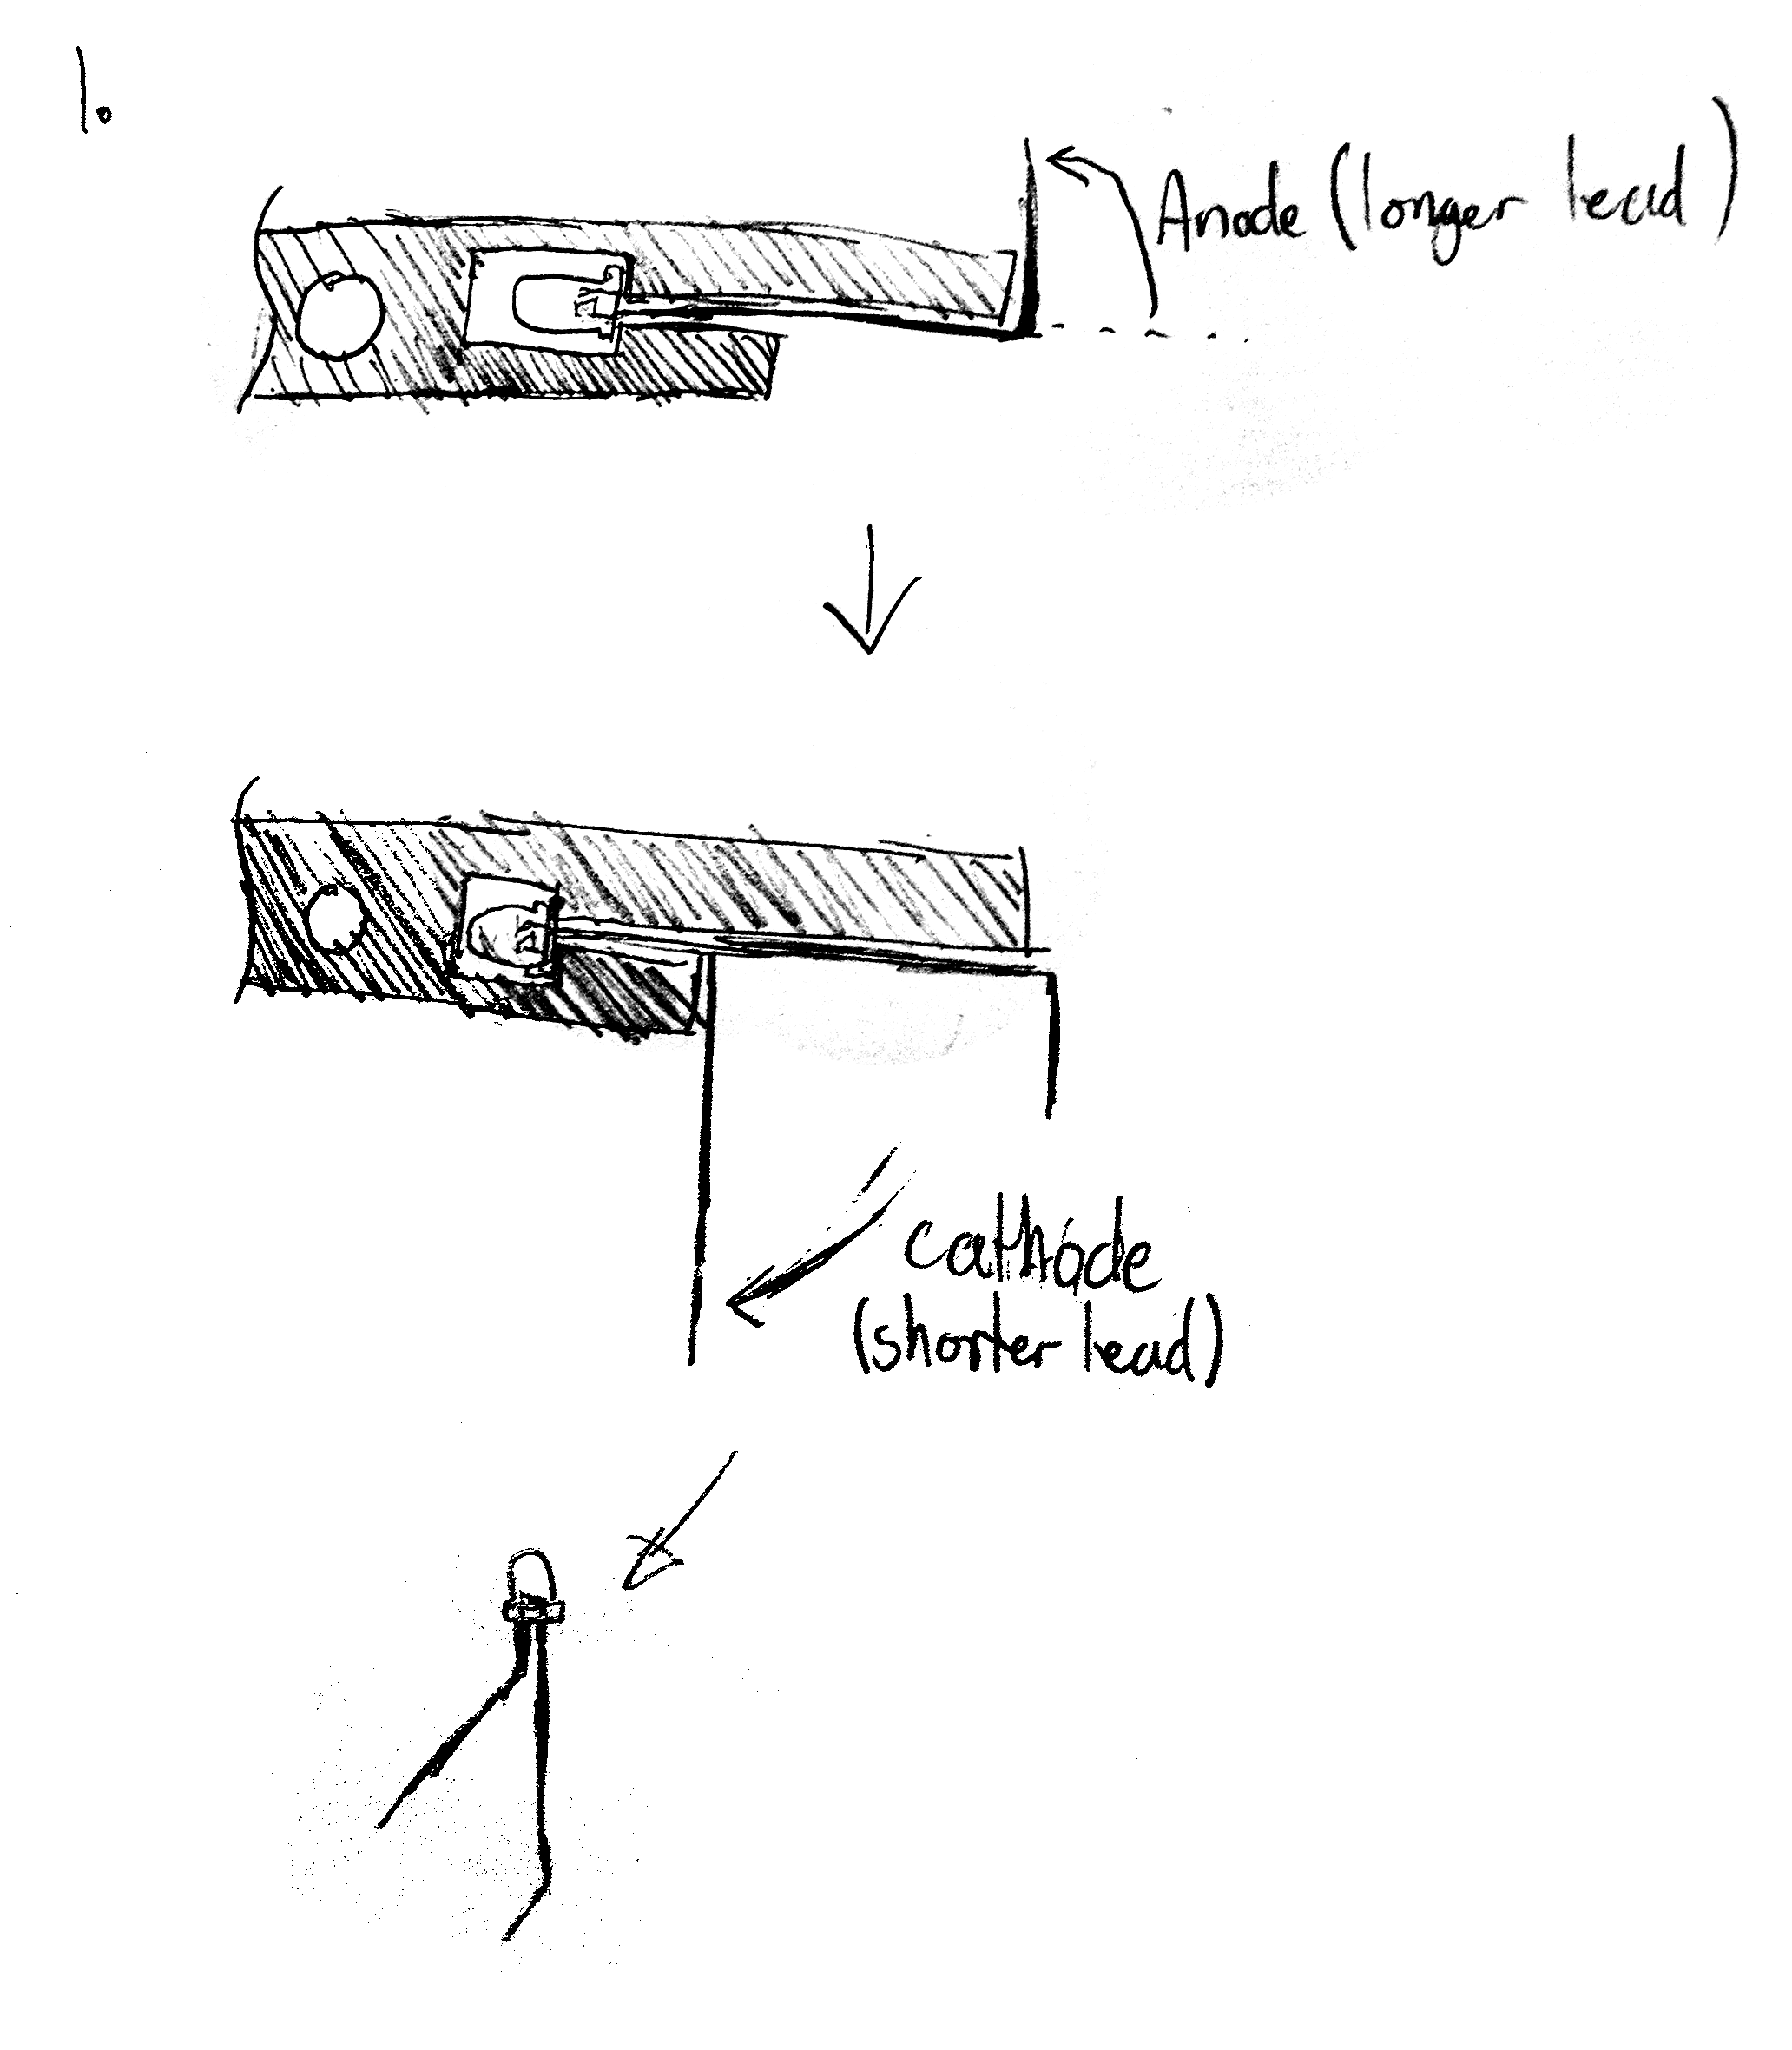 1.
Anode (longer lead)
cathode
(shorter lead)